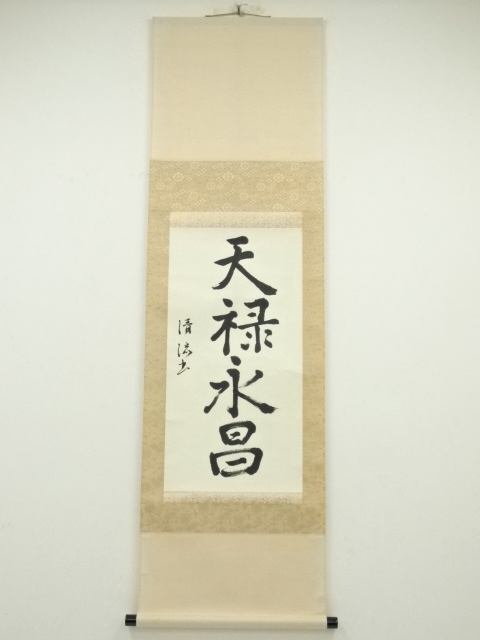 天禄永昌
清流書